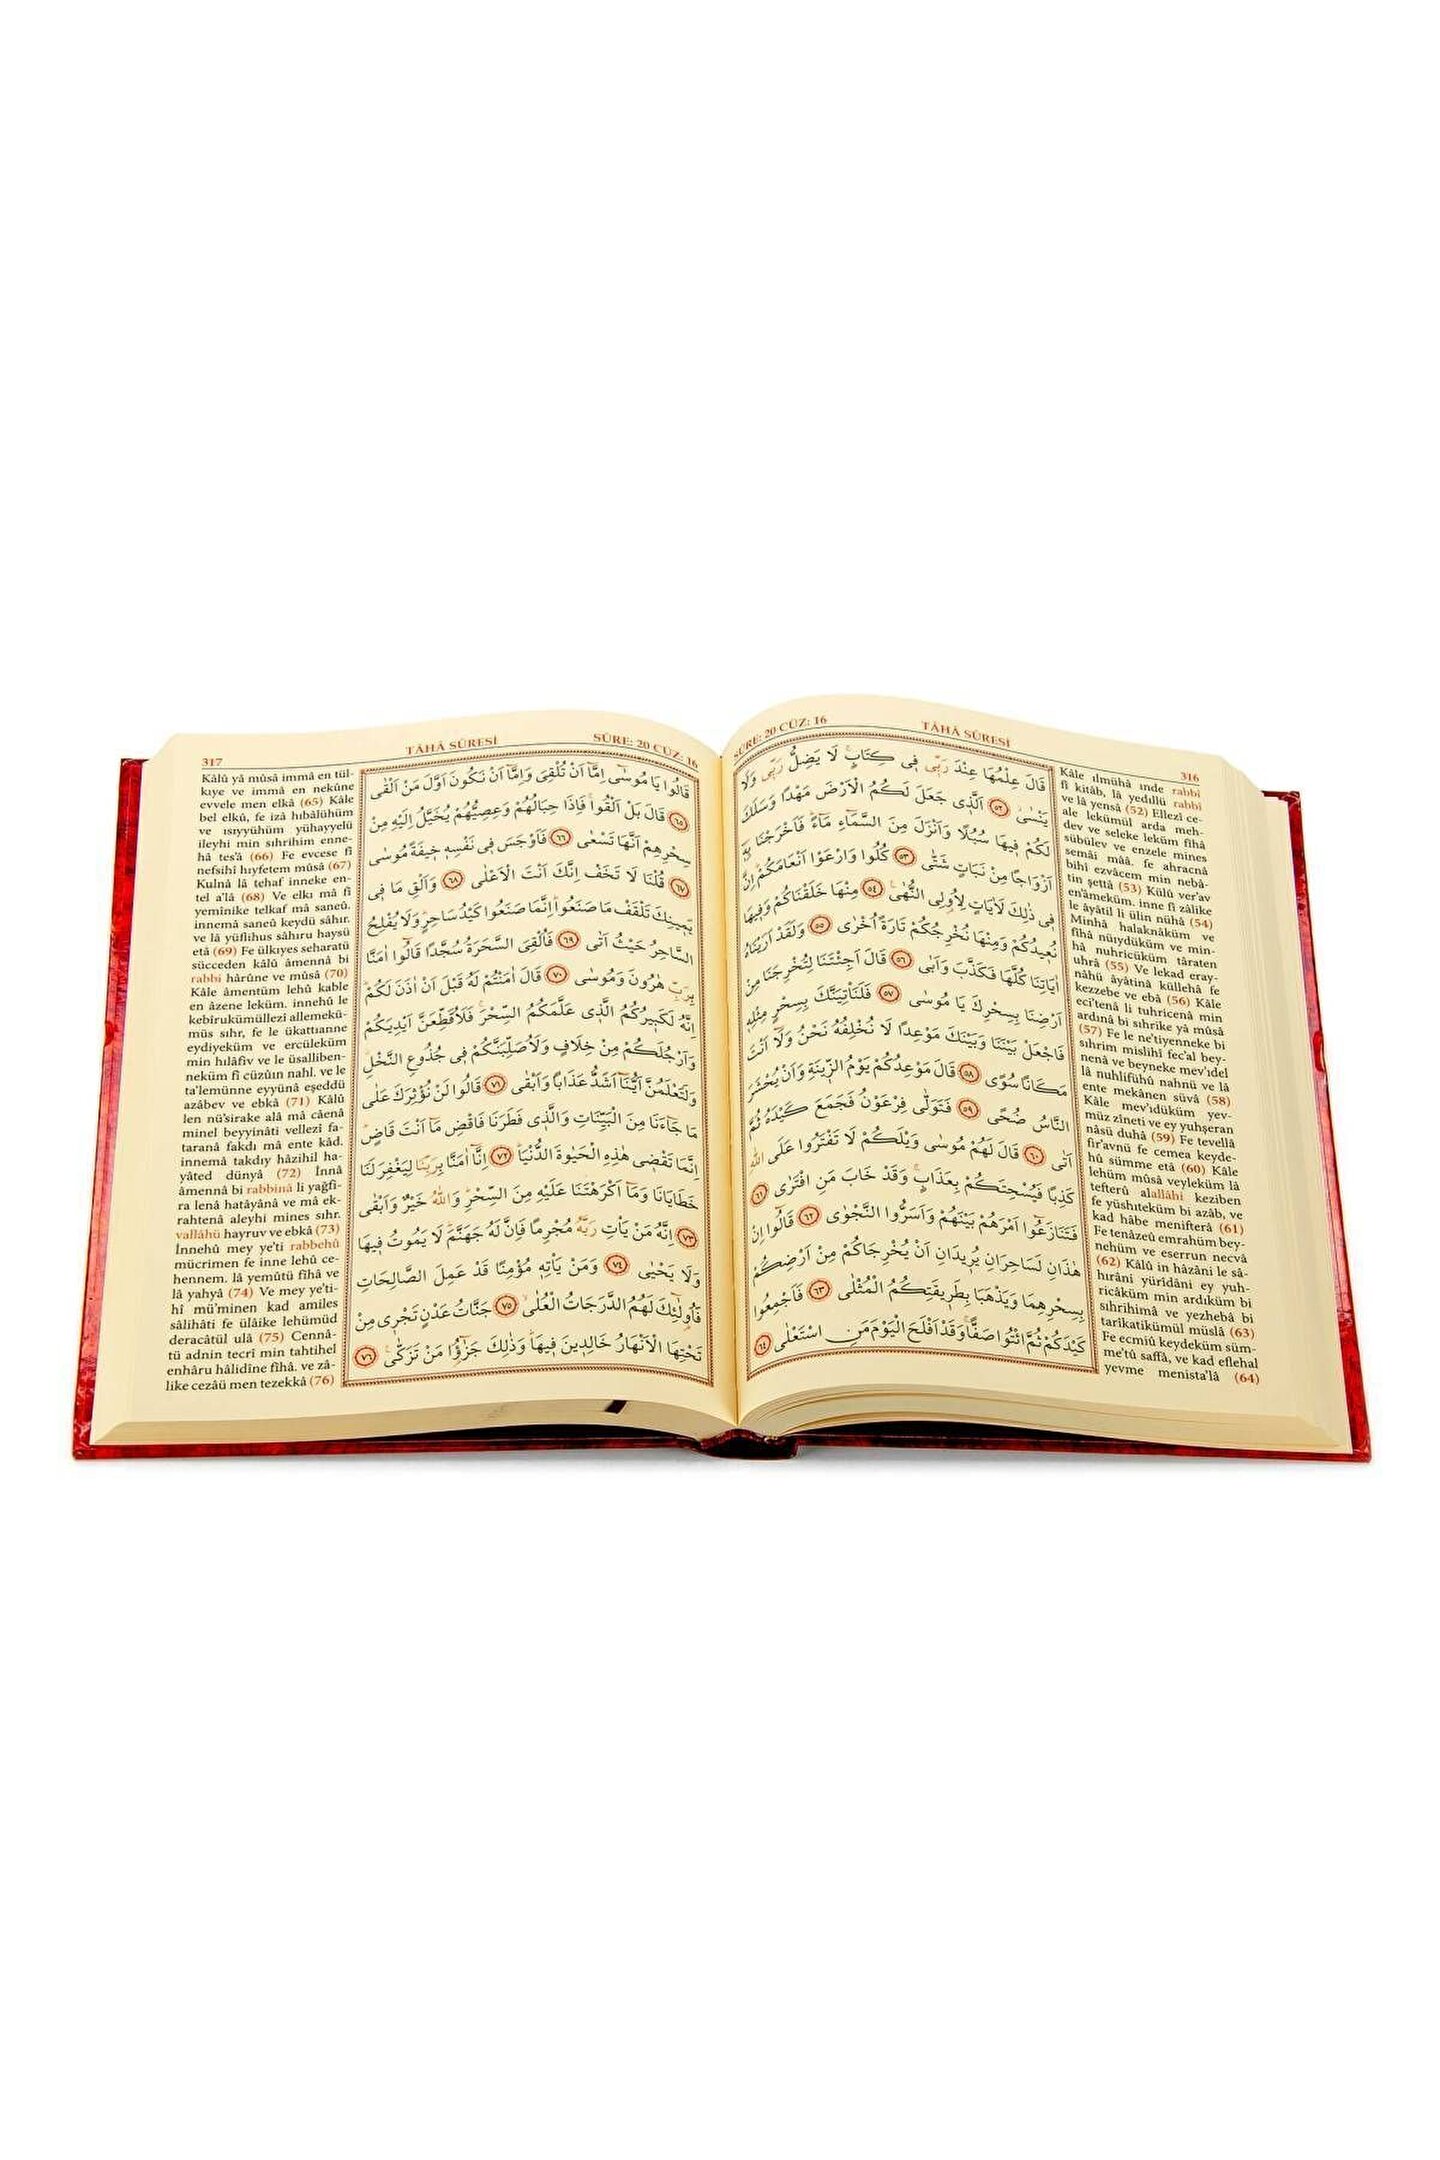 SÛRE: 20 CÜZ: 16 TÂHÂ SÛRESİ 316
قَالَ عِلْمُهَا عِنْدَ رَبّ۪ي ف۪ي كِتَابٍۚ لَا يَضِلُّ رَبّ۪ي وَلَا
يَنْسٰىۘ ﴿٥٢﴾ اَلَّذ۪ي جَعَلَ لَكُمُ الْاَرْضَ مَهْدًا وَسَلَكَ
لَكُمْ ف۪يهَا سُبُلًا وَاَنْزَلَ مِنَ السَّمَٓاءِ مَٓاءًۜ فَاَخْرَجْنَا بِه۪ٓ
اَزْوَاجًا مِنْ نَبَاتٍ شَتّٰى ﴿٥٣﴾ كُلُوا وَارْعَوْا اَنْعَامَكُمْۜ اِنَّ
ف۪ي ذٰلِكَ لَاٰيَاتٍ لِاُو۬لِي النُّهٰى۟ ﴿٥٤﴾ مِنْهَا خَلَقْنَاكُمْ وَف۪يهَا
نُع۪يدُكُمْ وَمِنْهَا نُخْرِجُكُمْ تَارَةً اُخْرٰى ﴿٥٥﴾ وَلَقَدْ اَرَيْنَاهُ
اٰيَاتِنَا كُلَّهَا فَكَذَّبَ وَاَبٰى ﴿٥٦﴾ قَالَ اَجِئْتَنَا لِتُخْرِجَنَا مِنْ
اَرْضِنَا بِسِحْرِكَ يَا مُوسٰى ﴿٥٧﴾ فَلَنَأْتِيَنَّكَ بِسِحْرٍ مِثْلِه۪
فَاجْعَلْ بَيْنَنَا وَبَيْنَكَ مَوْعِدًا لَا نُخْلِفُهُ نَحْنُ وَلَٓا اَنْتَ
مَكَانًا سُوًى ﴿٥٨﴾ قَالَ مَوْعِدُكُمْ يَوْمُ الزّ۪ينَةِ وَاَنْ يُحْشَرَ
النَّاسُ ضُحًى ﴿٥٩﴾ فَتَوَلّٰى فِرْعَوْنُ فَجَمَعَ كَيْدَهُ ثُمَّ
اَتٰى ﴿٦٠﴾ قَالَ لَهُمْ مُوسٰى وَيْلَكُمْ لَا تَفْتَرُوا عَلَى اللّٰهِ
كَذِبًا فَيُسْحِتَكُمْ بِعَذَابٍۚ وَقَدْ خَابَ مَنِ افْتَرٰى ﴿٦١﴾
فَتَنَازَعُٓوا اَمْرَهُمْ بَيْنَهُمْ وَاَسَرُّوا النَّجْوٰى ﴿٦٢﴾ قَالُٓوا اِنْ
هٰذَانِ لَسَاحِرَانِ يُر۪يدَانِ اَنْ يُخْرِجَاكُمْ مِنْ اَرْضِكُمْ
بِسِحْرِهِمَا وَيَذْهَبَا بِطَر۪يقَتِكُمُ الْمُثْلٰى ﴿٦٣﴾ فَاَجْمِعُوا
كَيْدَكُمْ ثُمَّ ائْتُوا صَفًّاۚ وَقَدْ اَفْلَحَ الْيَوْمَ مَنِ اسْتَعْلٰى ﴿٦٤﴾
Kâle ılmühâ ınde rabbi
fî kitâb, lâ yedıllü rabbi
ve lâ yensâ (52) Ellezî ce-
ale lekümül arda meh-
dev ve seleke leküm fîhâ
sübülev ve enzele mines
semâi mââ. fe ahracnâ
bihî ezvâcem min nebâ-
tin şettâ (53) Külû ver'av
en'âmeküm. inne fî zâlike
le âyâtil li ülin nühâ (54)
Minhâ halaknâküm ve
fîhâ nüıydüküm ve min-
hâ nuhricüküm târaten
uhrâ (55) Ve lekad eray-
nâhü âyâtinâ küllehâ fe
kezzebe ve ebâ (56) Kâle
eci'tenâ li tuhricenâ min
ardınâ bi sıhrike yâ mûsâ
(57) Fe le ne'tiyenneke bi
sıhrim mislihî fec'al bey-
nenâ ve beyneke mev'ıdel
lâ nuhlifühû nahnü ve lâ
ente mekânen süvâ (58)
Kâle mev'ıdüküm yev-
müz zîneti ve ey yuhşeran
nâsü duhâ (59) Fe tevellâ
fir'avnü fe cemea keyde-
hû sümme etâ (60) Kâle
lehüm mûsâ veyleküm lâ
tefterû alallâhi keziben
fe yüshıteküm bi azâb, ve
kad hâbe menifterâ (61)
Fe tenâzeû emrahüm bey-
nehüm ve eserrun necvâ
(62) Kâlû in hâzâni le sâ-
hırâni yürîdâni ey yuh-
ricâküm min ardıküm bi
sıhrihimâ ve yezhebâ bi
tarîkatikümül müslâ (63)
Fe ecmiû keydeküm süm-
me'tû saffâ, ve kad eflehal
yevme menista'lâ (64)
317 TÂHÂ SÛRESİ SÛRE: 20 CÜZ: 16
قَالُوا يَا مُوسٰٓى اِمَّٓا اَنْ تُلْقِيَ وَاِمَّٓا اَنْ نَكُونَ اَوَّلَ مَنْ اَلْقٰى
﴿٦٥﴾ قَالَ بَلْ اَلْقُواۚ فَاِذَا حِبَالُهُمْ وَعِصِيُّهُمْ يُخَيَّلُ اِلَيْهِ مِنْ
سِحْرِهِمْ اَنَّهَا تَسْعٰى ﴿٦٦﴾ فَاَوْجَسَ ف۪ي نَفْسِه۪ خ۪يفَةً مُوسٰى
﴿٦٧﴾ قُلْنَا لَا تَخَفْ اِنَّكَ اَنْتَ الْاَعْلٰى ﴿٦٨﴾ وَاَلْقِ مَا ف۪ي
يَم۪ينِكَ تَلْقَفْ مَا صَنَعُواۜ اِنَّمَا صَنَعُوا كَيْدُ سَاحِرٍۜ وَلَا يُفْلِحُ
السَّاحِرُ حَيْثُ اَتٰى ﴿٦٩﴾ فَاُلْقِيَ السَّحَرَةُ سُجَّدًا قَالُٓوا اٰمَنَّا
بِرَبِّ هٰرُونَ وَمُوسٰى ﴿٧٠﴾ قَالَ اٰمَنْتُمْ لَهُ قَبْلَ اَنْ اٰذَنَ لَكُمْۜ
اِنَّهُ لَكَب۪يرُكُمُ الَّذ۪ي عَلَّمَكُمُ السِّحْرَۚ فَلَاُقَطِّعَنَّ اَيْدِيَكُمْ
وَاَرْجُلَكُمْ مِنْ خِلَافٍ وَلَاُصَلِّبَنَّكُمْ ف۪ي جُذُوعِ النَّخْلِۘ
وَلَتَعْلَمُنَّ اَيُّنَٓا اَشَدُّ عَذَابًا وَاَبْقٰى ﴿٧١﴾ قَالُوا لَنْ نُؤْثِرَكَ عَلٰى
مَا جَٓاءَنَا مِنَ الْبَيِّنَاتِ وَالَّذ۪ي فَطَرَنَا فَاقْضِ مَٓا اَنْتَ قَاضٍۜ
اِنَّمَا تَقْض۪ي هٰذِهِ الْحَيٰوةَ الدُّنْيَاۜ ﴿٧٢﴾ اِنَّٓا اٰمَنَّا بِرَبِّنَا لِيَغْفِرَ لَنَا
خَطَايَانَا وَمَٓا اَكْرَهْتَنَا عَلَيْهِ مِنَ السِّحْرِۜ وَاللّٰهُ خَيْرٌ وَاَبْقٰى
﴿٧٣﴾ اِنَّهُ مَنْ يَأْتِ رَبَّهُ مُجْرِمًا فَاِنَّ لَهُ جَهَنَّمَۜ لَا يَمُوتُ ف۪يهَا
وَلَا يَحْيٰى ﴿٧٤﴾ وَمَنْ يَأْتِه۪ مُؤْمِنًا قَدْ عَمِلَ الصَّالِحَاتِ
فَاُو۬لٰٓئِكَ لَهُمُ الدَّرَجَاتُ الْعُلٰىۙ ﴿٧٥﴾ جَنَّاتُ عَدْنٍ تَجْر۪ي مِنْ
تَحْتِهَا الْاَنْهَارُ خَالِد۪ينَ ف۪يهَاۜ وَذٰلِكَ جَزٰٓؤُ۬ا مَنْ تَزَكّٰى۟ ﴿٧٦﴾
Kâlû yâ mûsâ immâ en tül-
kıye ve immâ en nekûne
evvele men elkâ (65) Kâle
bel elkû, fe izâ hıbâlühüm
ve ısıyyühüm yühayyelü
ileyhi min sıhrihim enne-
hâ tes'â (66) Fe evcese fî
nefsihî hıyfetem mûsâ (67)
Kulnâ lâ tehaf inneke en-
tel a'lâ (68) Ve elkı mâ fî
yemînike telkaf mâ saneû.
innemâ saneû keydü sâhır.
ve lâ yüflihus sâhıru haysü
etâ (69) Fe ülkıyes seharatü
sücceden kâlû âmennâ bi
rabbi hârûne ve mûsâ (70)
Kâle âmentüm lehû kable
en âzene leküm. innehû le
kebîrukümüllezî allemekü-
müs sıhr, fe le ükattıanne
eydiyeküm ve ercüleküm
min hılâfiv ve le üsalliben-
neküm fî cüzûın nahl. ve le
ta'lemünne eyyünâ eşeddü
azâbev ve ebkâ (71) Kâlû
len nü'sirake alâ mâ câenâ
minel beyyinâti vellezî fa-
taranâ fakdı mâ ente kâd.
innemâ takdıy hâzihil ha-
yâted dünyâ (72) İnnâ
âmennâ bi rabbinâ li yağfi-
ra lenâ hatâyânâ ve mâ ek-
rahtenâ aleyhi mines sıhr.
vallâhü hayruv ve ebkâ (73)
İnnehû mey ye'ti rabbehû
mücrimen fe inne lehû ce-
hennem. lâ yemûtü fîhâ ve
lâ yahyâ (74) Ve mey ye'ti-
hî mü'minen kad amiles
sâlihâti fe ülâike lehümüd
deracâtül ulâ (75) Cennâ-
tü adnin tecrî min tahtihel
enhâru hâlidîne fîhâ. ve zâ-
like cezâü men tezekkâ (76)